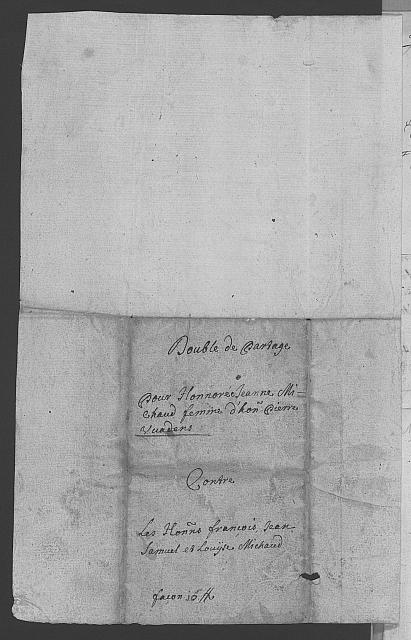 Double de Partage
Pour Honnorée Jeanne Mi=
chaud femme d'hon.^e Pierre
Vuadens
Contre
Les Honn.^s francois, Jean
Samuel et Louyse Michaud
facon